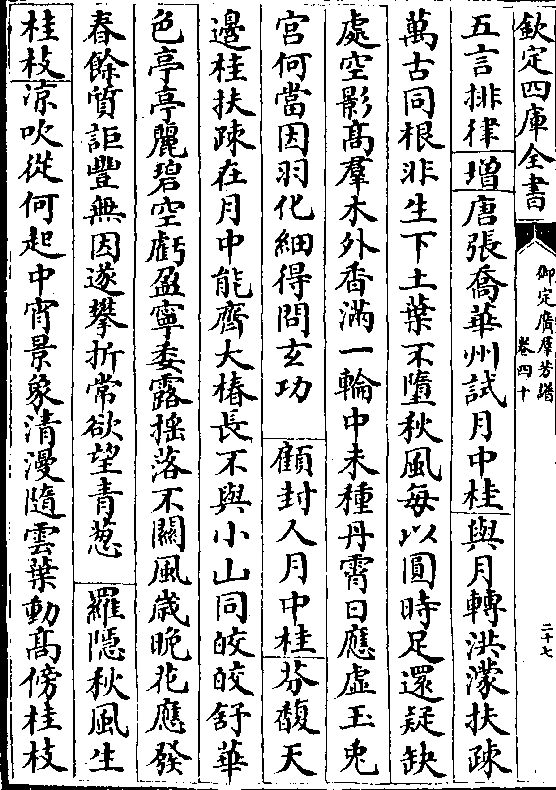 欽定四庫全書
御定廣羣芳譜
卷四十
二十七
五言排律增唐張喬華州試月中桂與月轉洪濛扶疎
萬古同根非生下土葉不墮秋風每以圓時足還疑缺
處空影髙羣木外香滿一輪中未種丹霄日應虛玉兎
宮何當因羽化細得問玄功 顧封人月中桂芬馥天
邊桂扶疎在月中能齊大椿長不與小山同皎皎舒華
色亭亭麗碧空虧盈寧委露揺落不關風歳晚花應發
春餘質詎豐無因遂攀折常欲望青葱 羅隱秋風生
桂枝涼吹從何起中宵景象清漫隨雲葉動髙傍桂枝